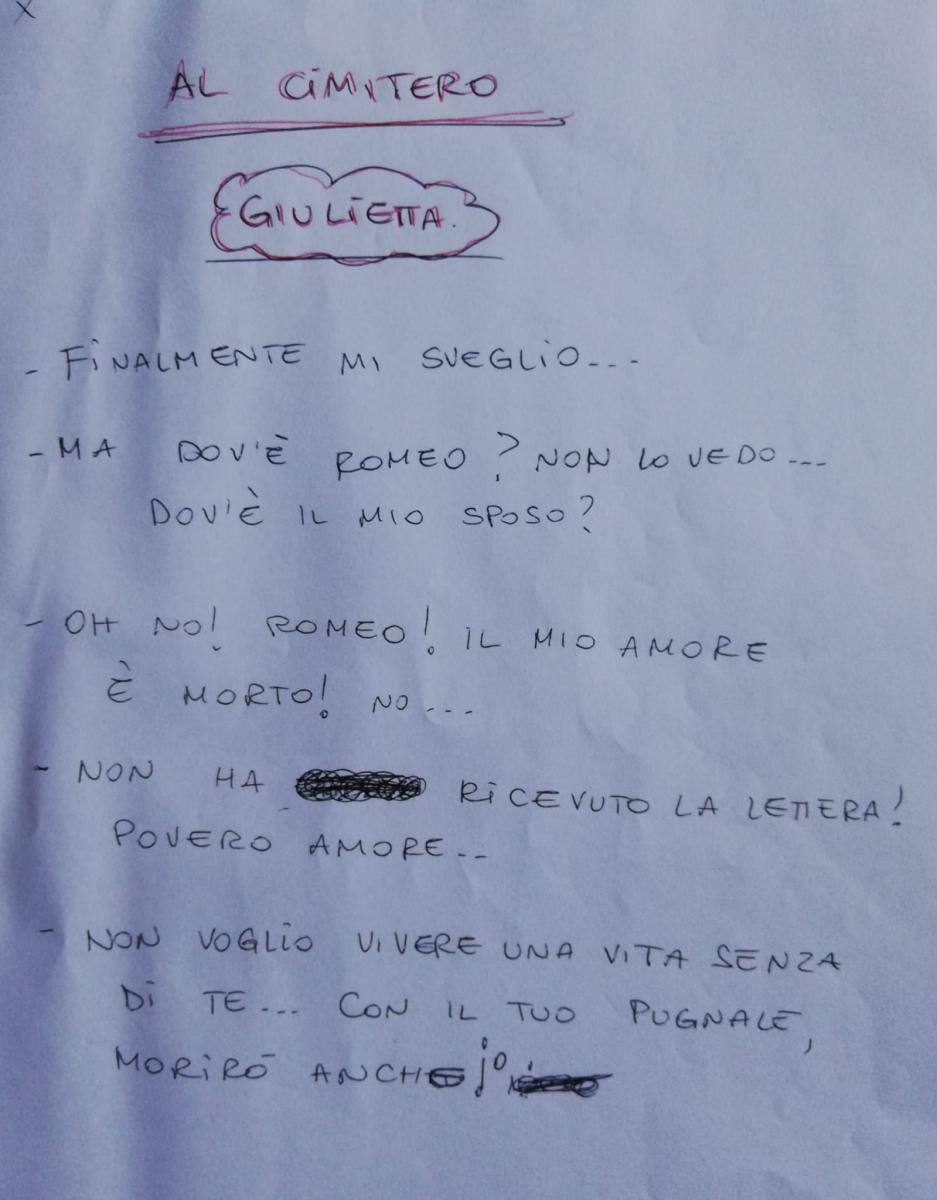 X
AL CIMITERO
GIULIETTA.
- FINALMENTE MI SVEGLIO...
- MA DOV'È ROMEO? NON LO VEDO...
DOV'È IL MIO SPOSO?
- OH NO! ROMEO! IL MIO AMORE
È MORTO! NO...
- NON HA RICEVUTO LA LETTERA!
POVERO AMORE..
- NON VOGLIO VIVERE UNA VITA SENZA
DI TE... CON IL TUO PUGNALE,
MORIRÒ ANCH'IO